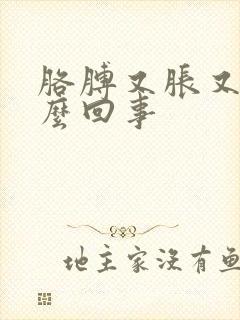 胳膊又脹又
麼回事
地主家没有鱼